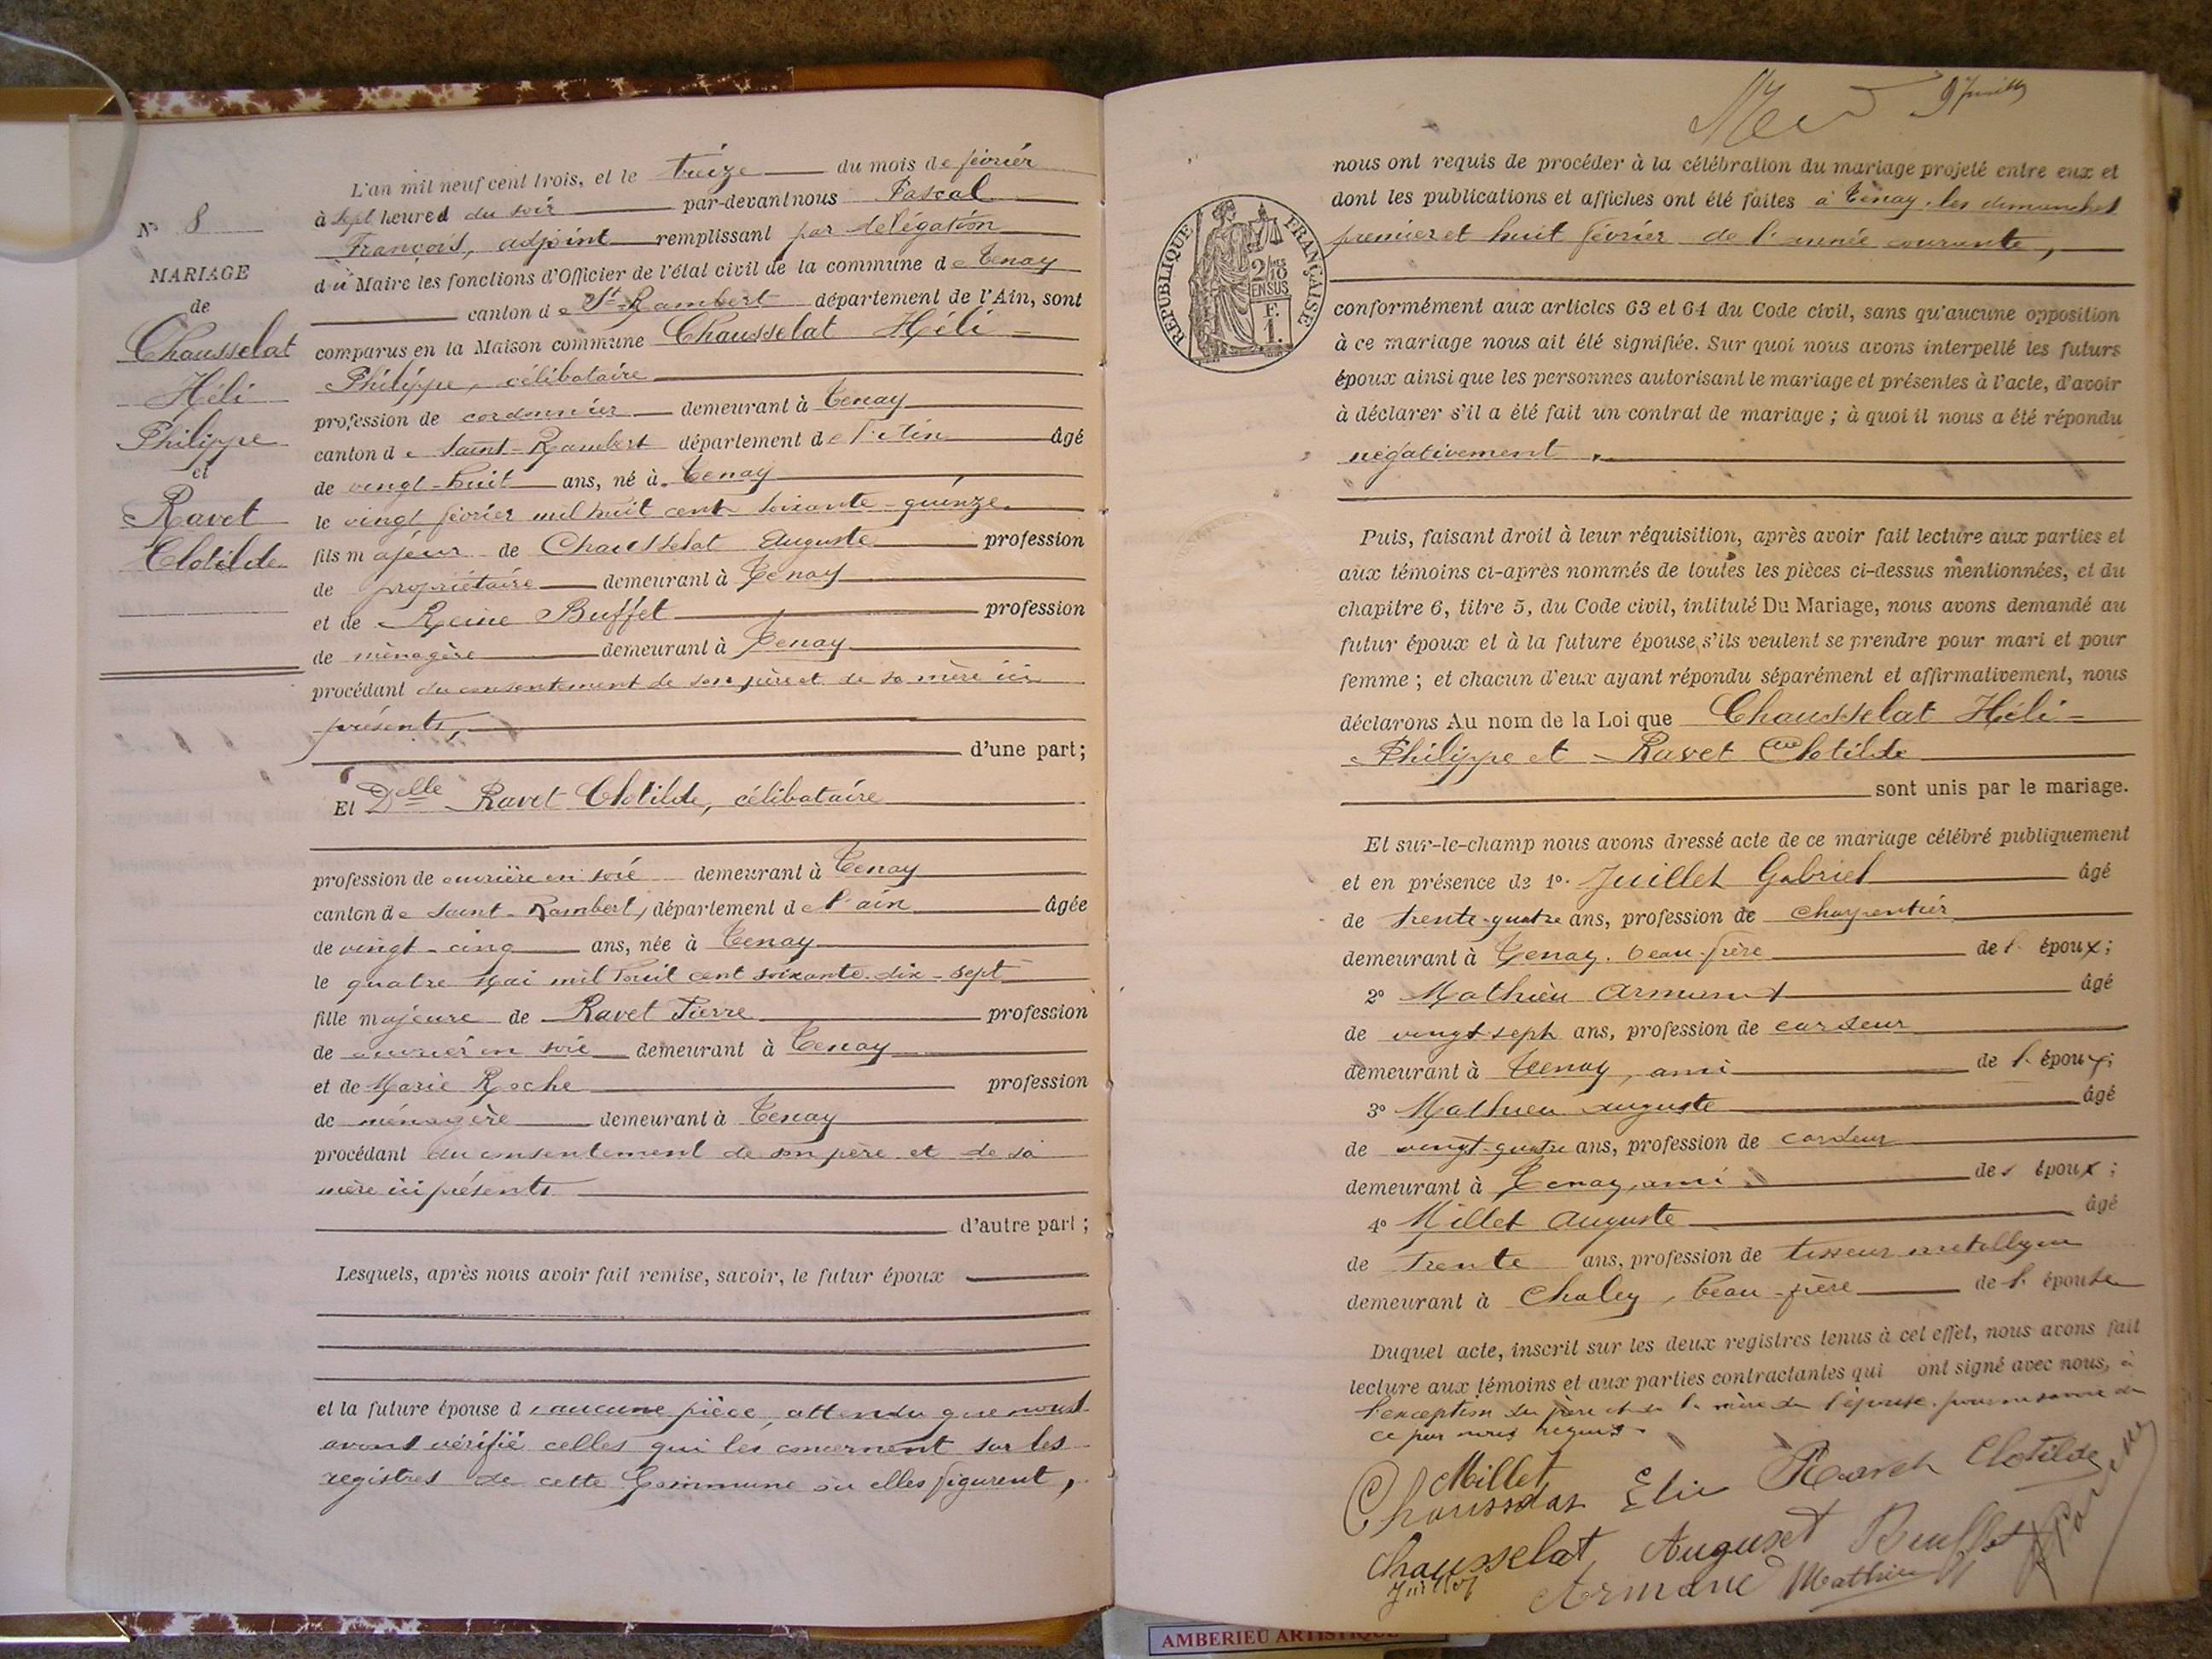 N° 8
MARIAGE
de
Chausselat
Héli
Philippe
et
Ravet
Clotilde
L'an mil neuf cent trois, et le treize du mois de février
à sept heures du soir par-devant nous Pascal
François, adjoint remplissant par délégation
du Maire les fonctions d'Officier de l'état civil de la commune de Tenay
canton de St-Rambert département de l'Ain, sont
comparus en la Maison commune Chausselat Héli
Philippe, célibataire
profession de cordonnier demeurant à Tenay
canton de Saint-Rambert département de l'Ain âgé
de vingt-huit ans, né à Tenay
le vingt février mil huit cent soixante-quinze
fils majeur de Chausselat Auguste profession
de propriétaire demeurant à Tenay
et de Reine Buffet profession
de ménagère demeurant à Tenay
procédant du consentement de son père et de sa mère ici
présents,
d'une part;
Et Delle Ravet Clotilde, célibataire
profession de ouvrière en soie demeurant à Tenay
canton de Saint-Rambert, département de l'ain âgée
de vingt-cinq ans, née à Tenay
le quatre Mai mil huit cent soixante-dix-sept
fille majeure de Ravet Pierre profession
de ouvrier en soie demeurant à Tenay
et de Marie Roche profession
de ménagère demeurant à Tenay
procédant du consentement de son père et de sa
mère ici présents
d'autre part;
Lesquels, après nous avoir fait remise, savoir, le futur époux
et la future épouse d'aucune pièce, attendu que nous
avons vérifié celles qui les concernent sur les
registres de cette Commune où elles figurent,
RÉPUBLIQUE FRANÇAISE
2/10
EN SUS
F.
1.
nous ont requis de procéder à la célébration du mariage projeté entre eux et
dont les publications et affiches ont été faites à Tenay les dimanches
premier et huit février de l'année courante,
conformément aux articles 63 et 64 du Code civil, sans qu'aucune opposition
à ce mariage nous ait été signifiée. Sur quoi nous avons interpellé les futurs
époux ainsi que les personnes autorisant le mariage et présentes à l'acte, d'avoir
à déclarer s'il a été fait un contrat de mariage; à quoi il nous a été répondu
négativement.
Puis, faisant droit à leur réquisition, après avoir fait lecture aux parties et
aux témoins ci-après nommés de toutes les pièces ci-dessus mentionnées, et du
chapitre 6, titre 5, du Code civil, intitulé Du Mariage, nous avons demandé au
futur époux et à la future épouse s'ils veulent se prendre pour mari et pour
femme; et chacun d'eux ayant répondu séparément et affirmativement, nous
déclarons Au nom de la Loi que Chausselat Héli
Philippe et Ravet Clotilde
sont unis par le mariage.
Et sur-le-champ nous avons dressé acte de ce mariage célébré publiquement
et en présence de 1° Juillet Gabriel âgé
de trente-quatre ans, profession de charpentier
demeurant à Tenay, beau-frère de l'époux;
2° Mathieu Armand âgé
de vingt sept ans, profession de cardeur
demeurant à Tenay, ami de l'époux;
3° Mathieu auguste âgé
de vingt-quatre ans, profession de cardeur
demeurant à Tenay, ami des époux;
4° Millet Auguste âgé
de Trente ans, profession de tisseur métallique
demeurant à Chaley, beau-frère de l'épouse
Duquel acte, inscrit sur les deux registres tenus à cet effet, nous avons fait
lecture aux témoins et aux parties contractantes qui ont signé avec nous, à
l'exception du père et de la mère de l'épouse, pour ne savoir de
ce par nous requis.
Millet
Elie Ravet Clotilde
Chausselat Auguset Buffet
Juillet Armand Mathieu
AMBERIEU ARTISTIQUE